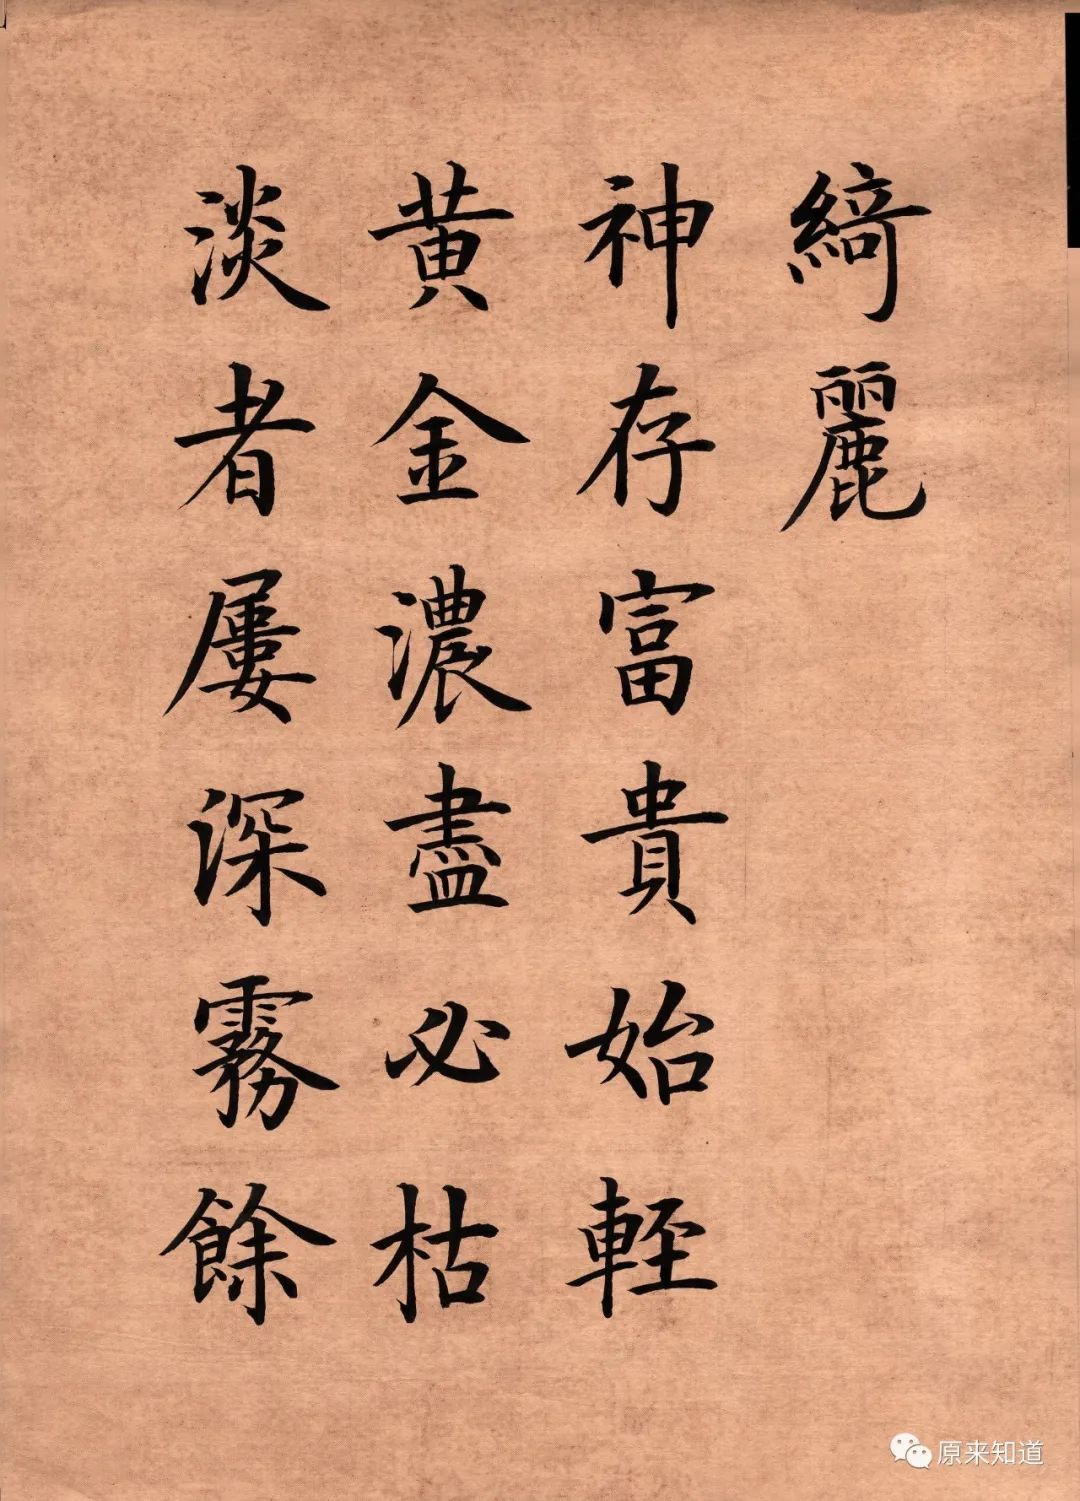 綺麗
神存富貴始輕
黄金濃盡必枯
淡者屢深霧餘
原来知道